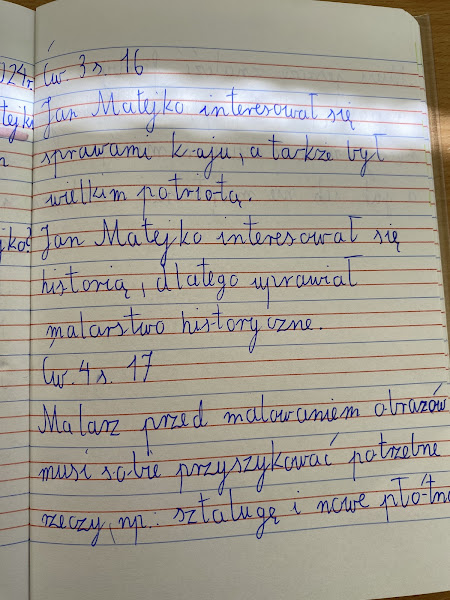 024r.
Ćw. 3 s. 16
Jan Matejko interesował się
sprawami k-aju, a także był
wielkim patriotą.
Jan Matejko interesował się
historią, dlatego uprawiał
malarstwo historyczne.
Ćw. 4 s. 17
Malarz przed malowaniem obrazów
musi sobie przyszykować potrzebne
rzeczy, np.: sztalugę i nowe płótno